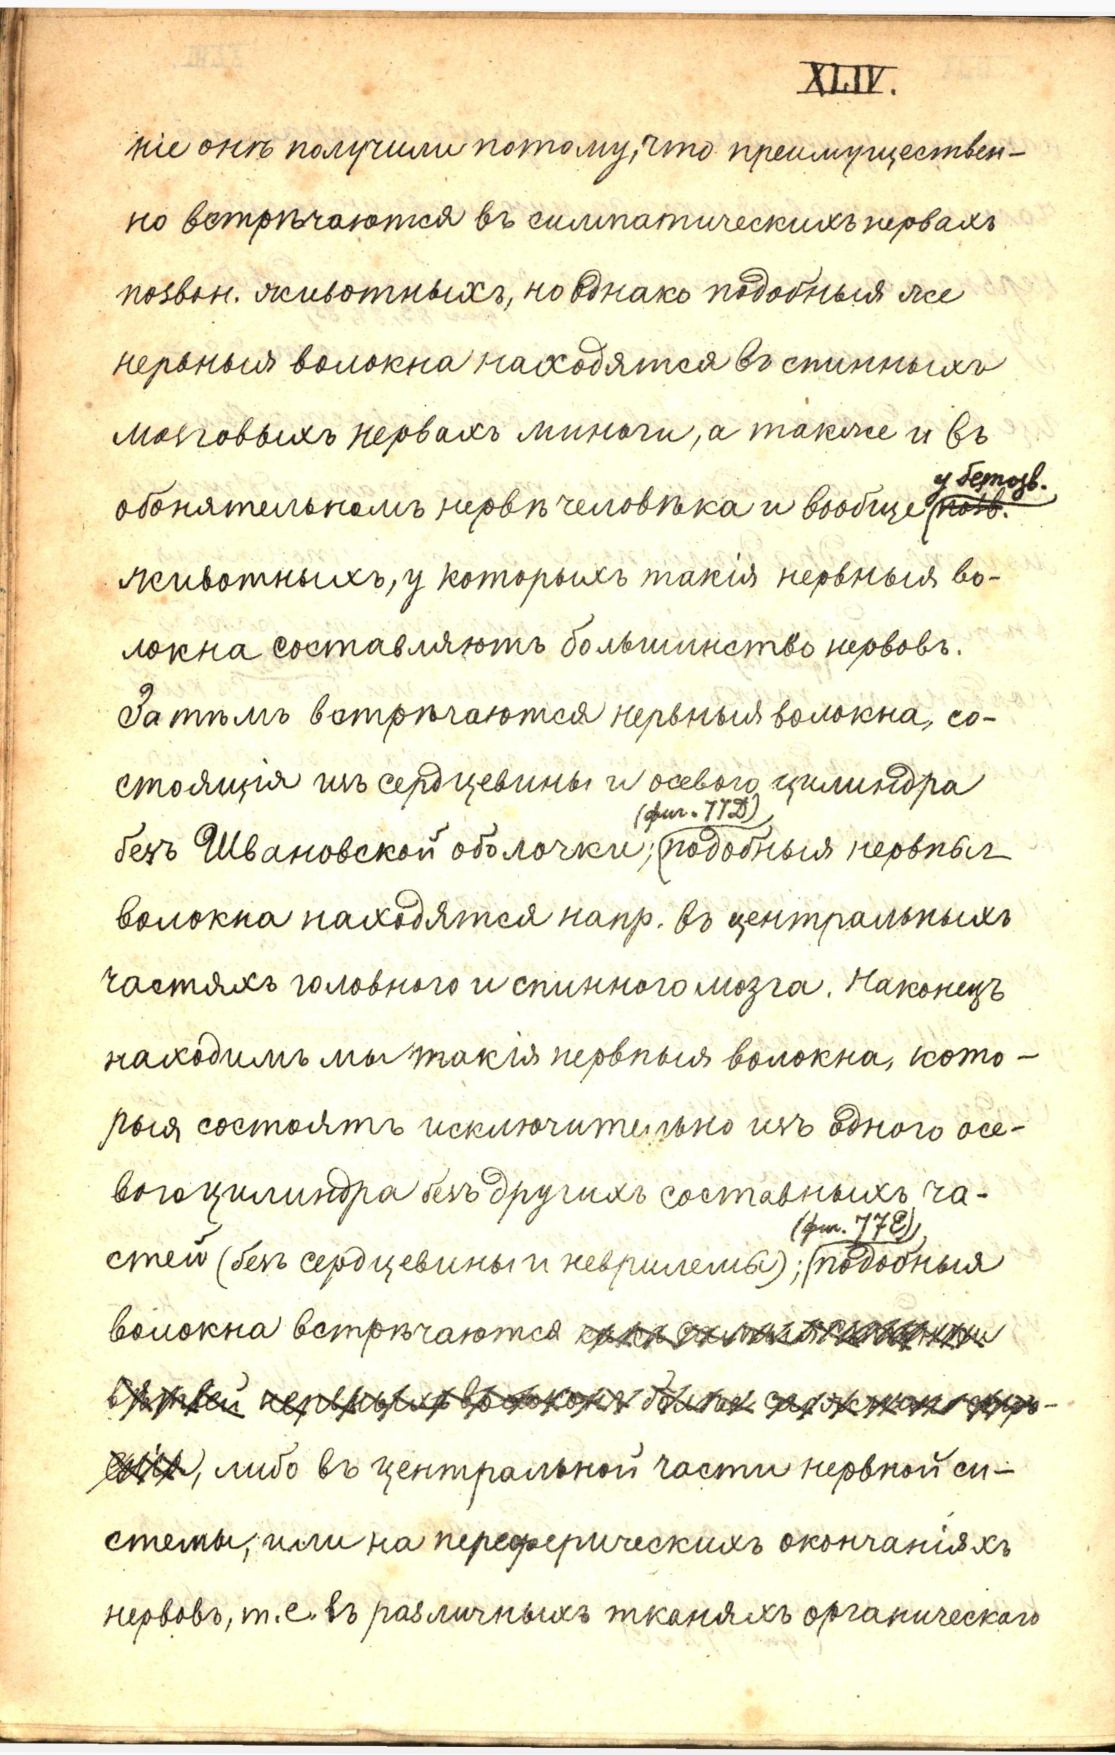 XLIV.
ніе онѣ получили потому, что преимуществен-
но встрѣчаются въ симпатическихъ нервахъ
позвон. животныхъ, но однако подобныя же
нервныя волокна находятся въ спинныхъ
мозговыхъ нервахъ миноги, а также и въ
у безпозв.
обонятельномъ нервѣ человѣка и вообще позв.
животныхъ, у которыхъ такія нервныя во-
локна составляютъ большинство нервовъ.
Затѣмъ встрѣчаются нервныя волокна, со-
стоящія изъ сердцевины и осевого цилиндра
(фиг. 77D)
безъ Швановской оболочки; подобныя нервныя
волокна находятся напр. въ центральныхъ
частяхъ головного и спинного мозга. Наконецъ
находимъ мы такія нервныя волокна, кото-
рыя состоятъ исключительно изъ одного осе-
вого цилиндра безъ другихъ составныхъ ча-
(фиг. 77E)
стей (безъ сердцевины и неврилемы); подобныя
волокна встрѣчаются
нервныхъ волоконъ
, либо въ центральной части нервной си-
стемы, или на переферическихъ окончаніяхъ
нервовъ, т.е. въ различныхъ тканяхъ органическаго